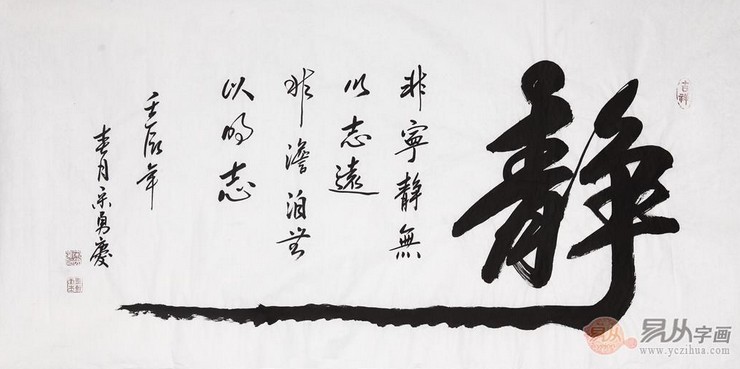 静
非寧静無
以志遠
非澹泊無
以明志
壬辰年
春月宋勇慶
吉祥
易从字画
www.yczihua.com